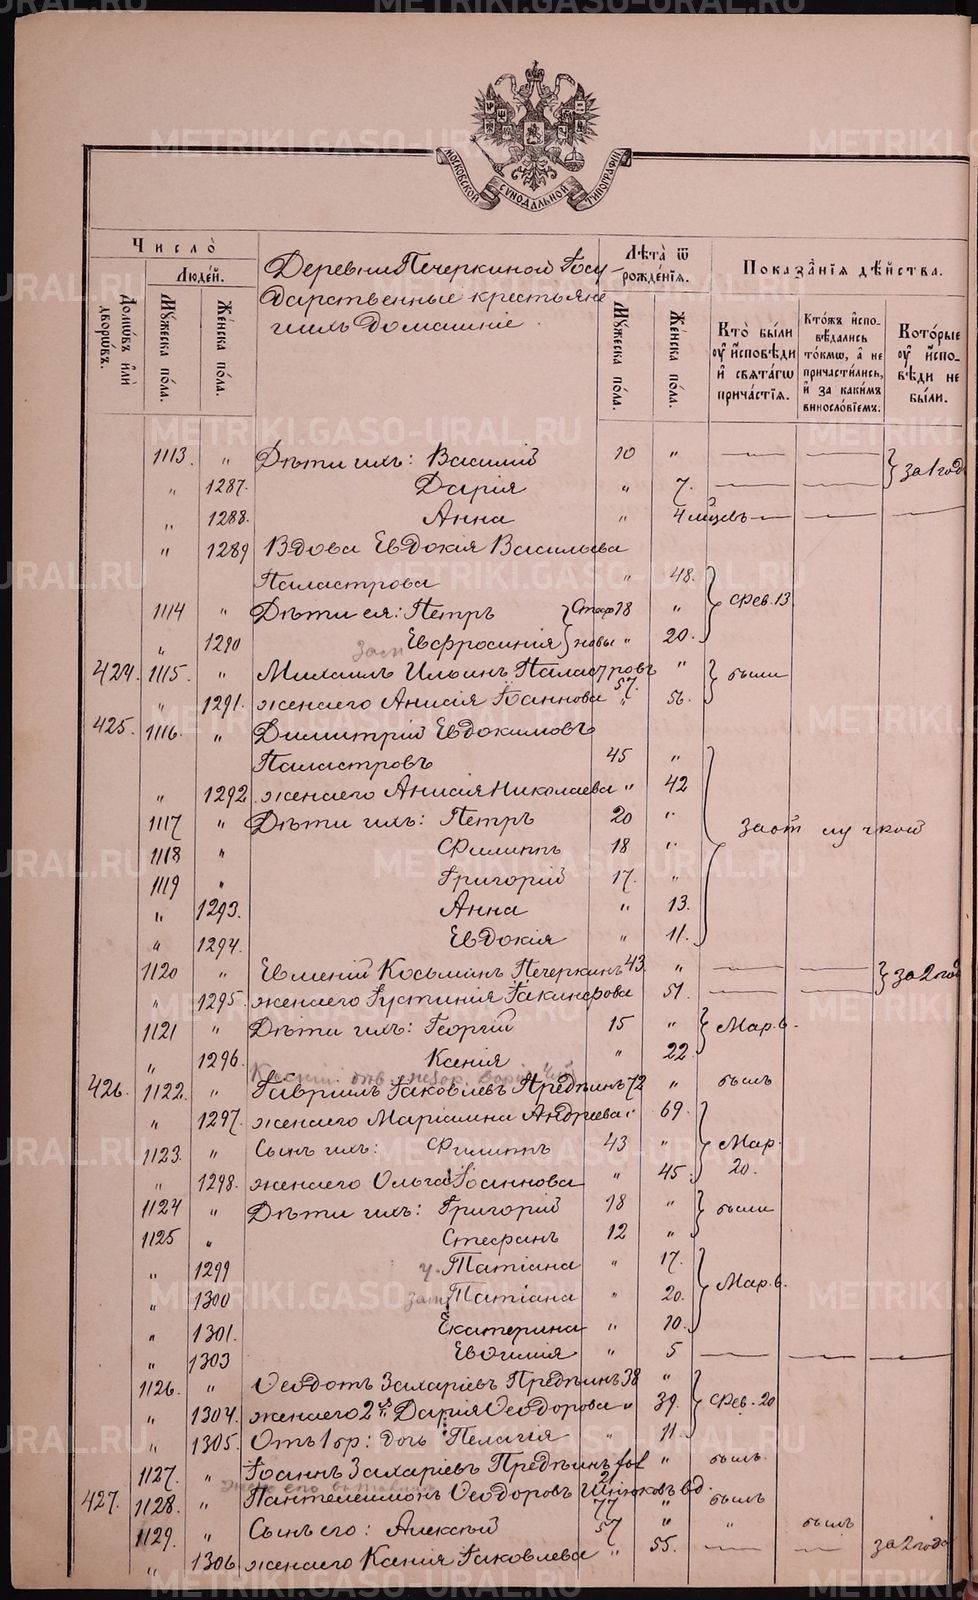 МОСКОВСКОЙ СУНОДАЛЬНОЙ ТИПОГРАФІИ
Число̀
Люде́й.
Домѡ́въ и҆лѝ дворѡ́въ.
Му́жеска по́ла.
Же́нска по́ла.
Деревни Печеркиной Госу-
дарственные крестьяне
и ихъ домашніе.
Лѣ́та ѿ рожде́нїѧ.
Му́жеска по́ла.
Же́нска по́ла.
Показа́нїѧ дѣ́йства.
Кто̀ бы́ли оу҆ и҆сповѣди и҆ свѧта́гѡ прича́стїѧ.
Кто́жъ и҆спо-вѣдались то́кмѡ, а҆ не причасти́лись, и҆ за каки́мъ винослѡ́вїемъ:
Кото́рые оу҆ и҆спо-вѣди не бы́ли.
1113. " Дѣти ихъ: Василій 10 " — — } за 1 год
" 1287. Дарія " 7. — —
" 1288. Анна " 4 мцсв — — —
" 1289 Вдова Евдокія Васильева
Паластрова " 48. } Фев. 13.
1114 " Дѣти ея: Петръ 18 "
" 1290 Евфросинія " 20.
424. 1115. " Михаилъ Ильинъ Паластровъ 57. " } были
" 1291. жена его Анисія Іоаннова " 56.
425. 1116. " Димитрій Евдокимовъ
Паластровъ 45 "
" 1292. жена его Анисія Николаева " 42
1117 " Дѣти ихъ: Петръ 20 " } за отлучкой
1118 " Филиппъ 18 "
1119 " Григорій 17. "
" 1293. Анна " 13.
" 1294. Евдокія " 11.
1120 " Евмений Косьминъ Печеркинъ 43 " — — } за 2 год
" 1295. жена его Іустинія " 51. — —
1121 " Дѣти ихъ: Георгій 15 " } Мар. 6.
" 1296. Ксенія " 22
426. 1122. " Гавріилъ Іаковлевъ Предѣинъ 72 " былъ
" 1297. жена его Маріамна Андреева " 69. } Мар. 20.
1123. " Сынъ ихъ: Филиппъ 43 "
" 1298. жена его Ольга Іоаннова " 45.
1124 " Дѣти ихъ: Григорій 18 " } были
1125 " Стефанъ 12 "
" 1299 Татіана " 17. } Мар. 6.
" 1300 Татіана " 20.
" 1301. Екатерина " 10.
" 1303 Евѳимія " 5 — — —
1126. " Ѳеодотъ Захаріевъ Предѣинъ 38 " } Фев. 20
" 1304. жена его 2я Дарія Ѳеодорова " 39.
" 1305. Отъ 1 бр: дочь Пелагія " 11.
1127. " Іоаннъ Захаріевъ Предѣинъ " былъ.
427. 1128. " Пантелеимонъ Ѳеодоровъ вд. 77 " былъ
1129. " Сынъ его: Алексѣй 57 " " былъ
" 1306. жена его Ксенія Іаковлева " 55. — — за 2 года
METRIKI.GASO-URAL.RU